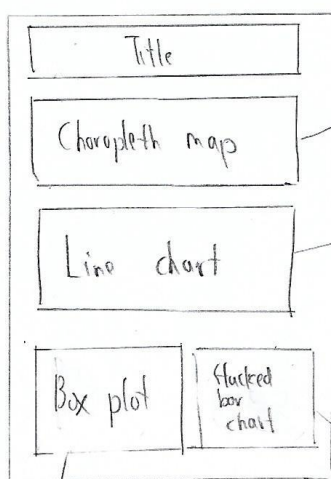 Title
Choropleth map
Line chart
Box plot
Stacked
bar
chart